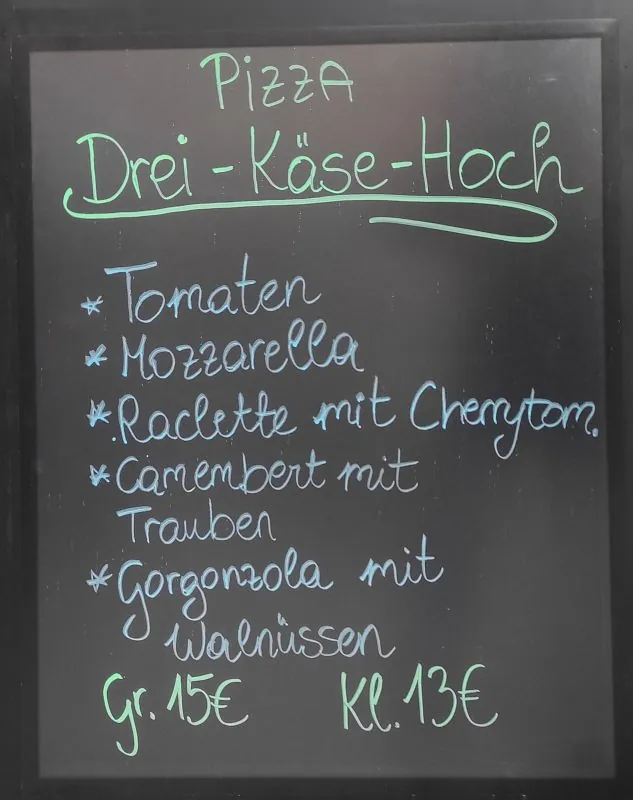 Pizza
Drei-Käse-Hoch
* Tomaten
* Mozzarella
* Raclette mit Cherrytom.
* Camembert mit
Trauben
* Gorgonzola mit
Walnüssen
Gr. 15€ Kl. 13€